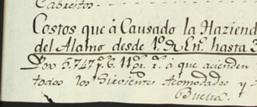 Cabritos
Costos que á Causado la Haziend
del Alamo desde 1º. de En.º hasta 3
Por 5.747 p.s 11 p.s r.s á que acienden
todos los Sirvientes Acomodados y
Buelta